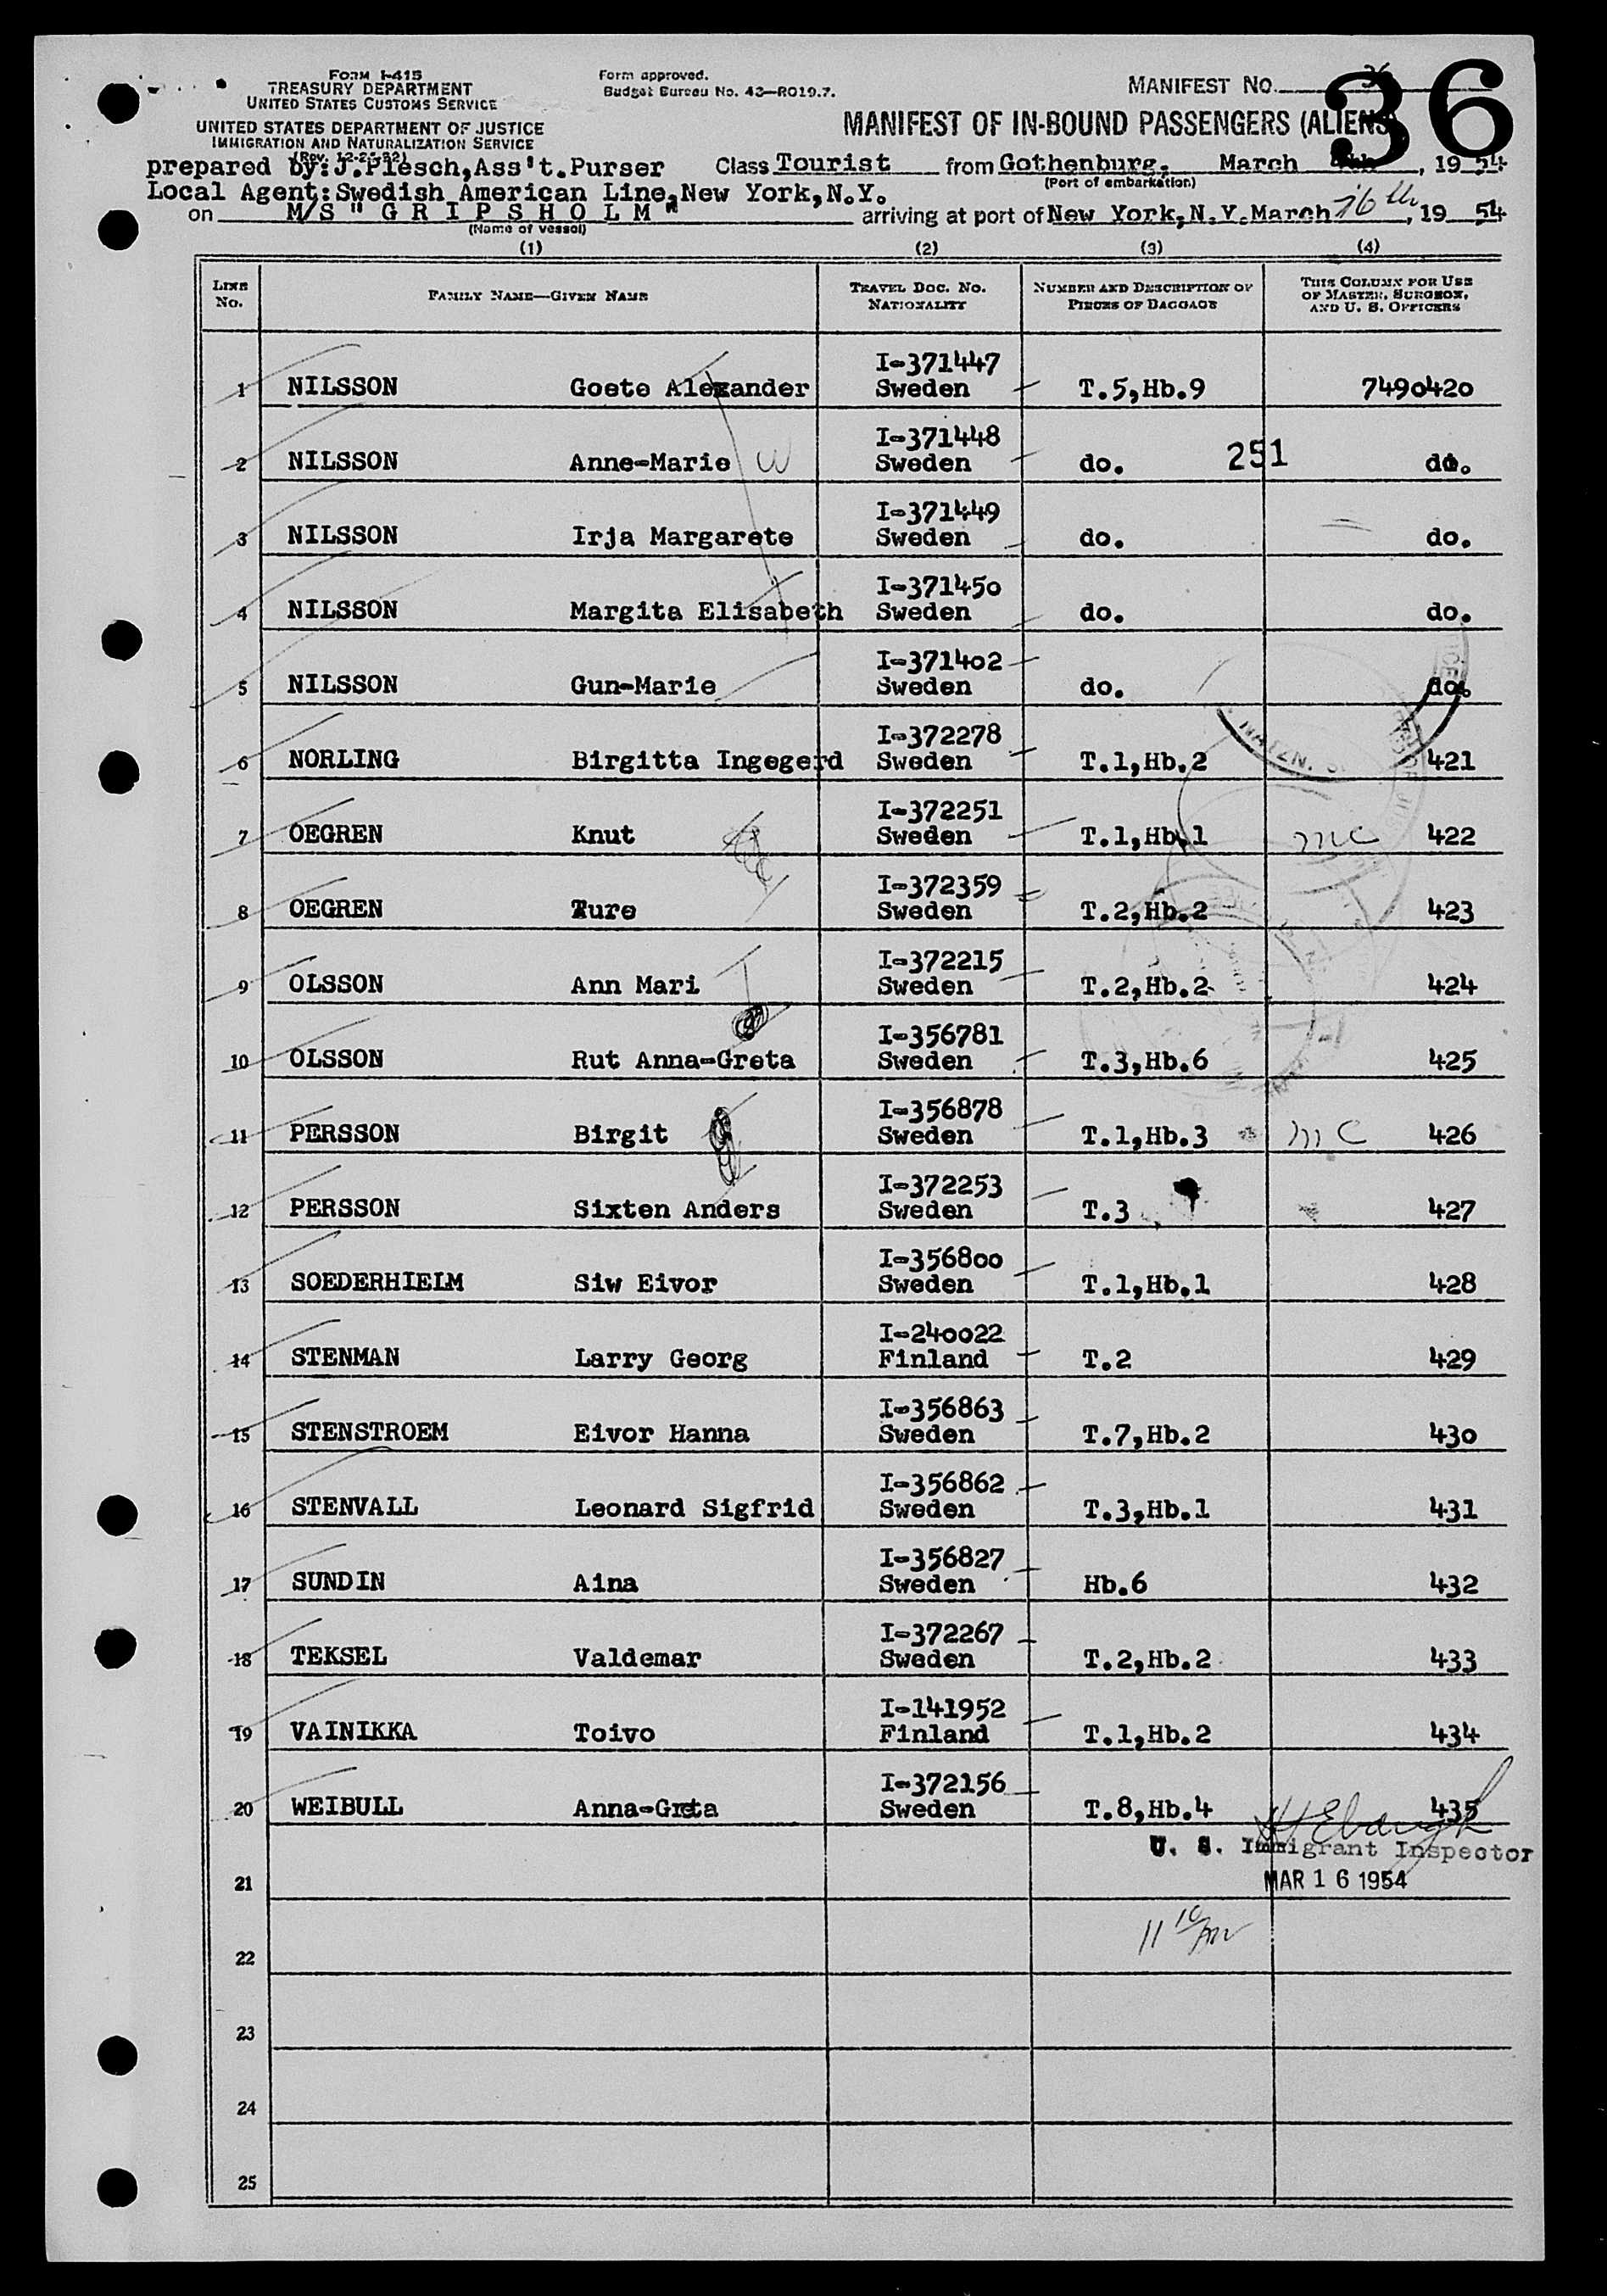 FORM I-415
TREASURY DEPARTMENT
UNITED STATES CUSTOMS SERVICE
UNITED STATES DEPARTMENT OF JUSTICE
IMMIGRATION AND NATURALIZATION SERVICE
Form approved.
Budget Bureau No. 43—R019.7.
MANIFEST NO. 36
36
MANIFEST OF IN-BOUND PASSENGERS (ALIENS)
prepared by: J.Plesch,Ass't.Purser Class Tourist from Gothenburg, March , 19 54
(Port of embarkation)
Local Agent: Swedish American Line,New York,N.Y.
on M/S " G R I P S H O L M " arriving at port of New York,N.Y.March 16th, 19 54
(Name of vessel)
(1) (2) (3) (4)
LINE No. FAMILY NAME—GIVEN NAME TRAVEL DOC. NO. NATIONALITY NUMBER AND DESCRIPTION OF PIECES OF BAGGAGE THIS COLUMN FOR USE OF MASTER, SURGEON, AND U. S. OFFICERS
I-371447
1 NILSSON Goete Alexander Sweden T.5,Hb.9 7490420
I-371448
2 NILSSON Anne-Marie W Sweden do. 251 do.
I-371449
3 NILSSON Irja Margarete Sweden do. do.
I-371450
4 NILSSON Margita Elisabeth Sweden do. do.
I-371402
5 NILSSON Gun-Marie Sweden do. do.
I-372278
6 NORLING Birgitta Ingegerd Sweden T.1,Hb.2 421
I-372251
7 OEGREN Knut Sweden T.1,Hb.1 mc 422
I-372359
8 OEGREN Ture Sweden T.2,Hb.2 423
I-372215
9 OLSSON Ann Mari Sweden T.2,Hb.2 424
I-356781
10 OLSSON Rut Anna-Greta Sweden T.3,Hb.6 425
I-356878
11 PERSSON Birgit Sweden T.1,Hb.3 mc 426
I-372253
12 PERSSON Sixten Anders Sweden T.3 427
I-356800
13 SOEDERHIELM Siw Eivor Sweden T.1,Hb.1 428
I-240022
14 STENMAN Larry Georg Finland T.2 429
I-356863
15 STENSTROEM Eivor Hanna Sweden T.7,Hb.2 430
I-356862
16 STENVALL Leonard Sigfrid Sweden T.3,Hb.1 431
I-356827
17 SUNDIN Aina Sweden Hb.6 432
I-372267
18 TEKSEL Valdemar Sweden T.2,Hb.2 433
I-141952
19 VAINIKKA Toivo Finland T.1,Hb.2 434
I-372156
20 WEIBULL Anna-Greta Sweden T.8,Hb.4 435
U. S. Immigrant Inspector
21 MAR 16 1954
22
23
24
25